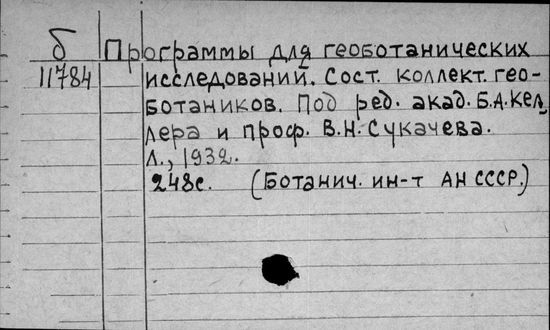 б
11784
Программы для геоботанических
исследований. Сост. коллект. гео-
ботаников. Под ред. акад. Б.А. Кел,
лера и проф. В.Н. Сукачева.
Л., 1932.
248с. (Ботанич. ин-т АН СССР.)